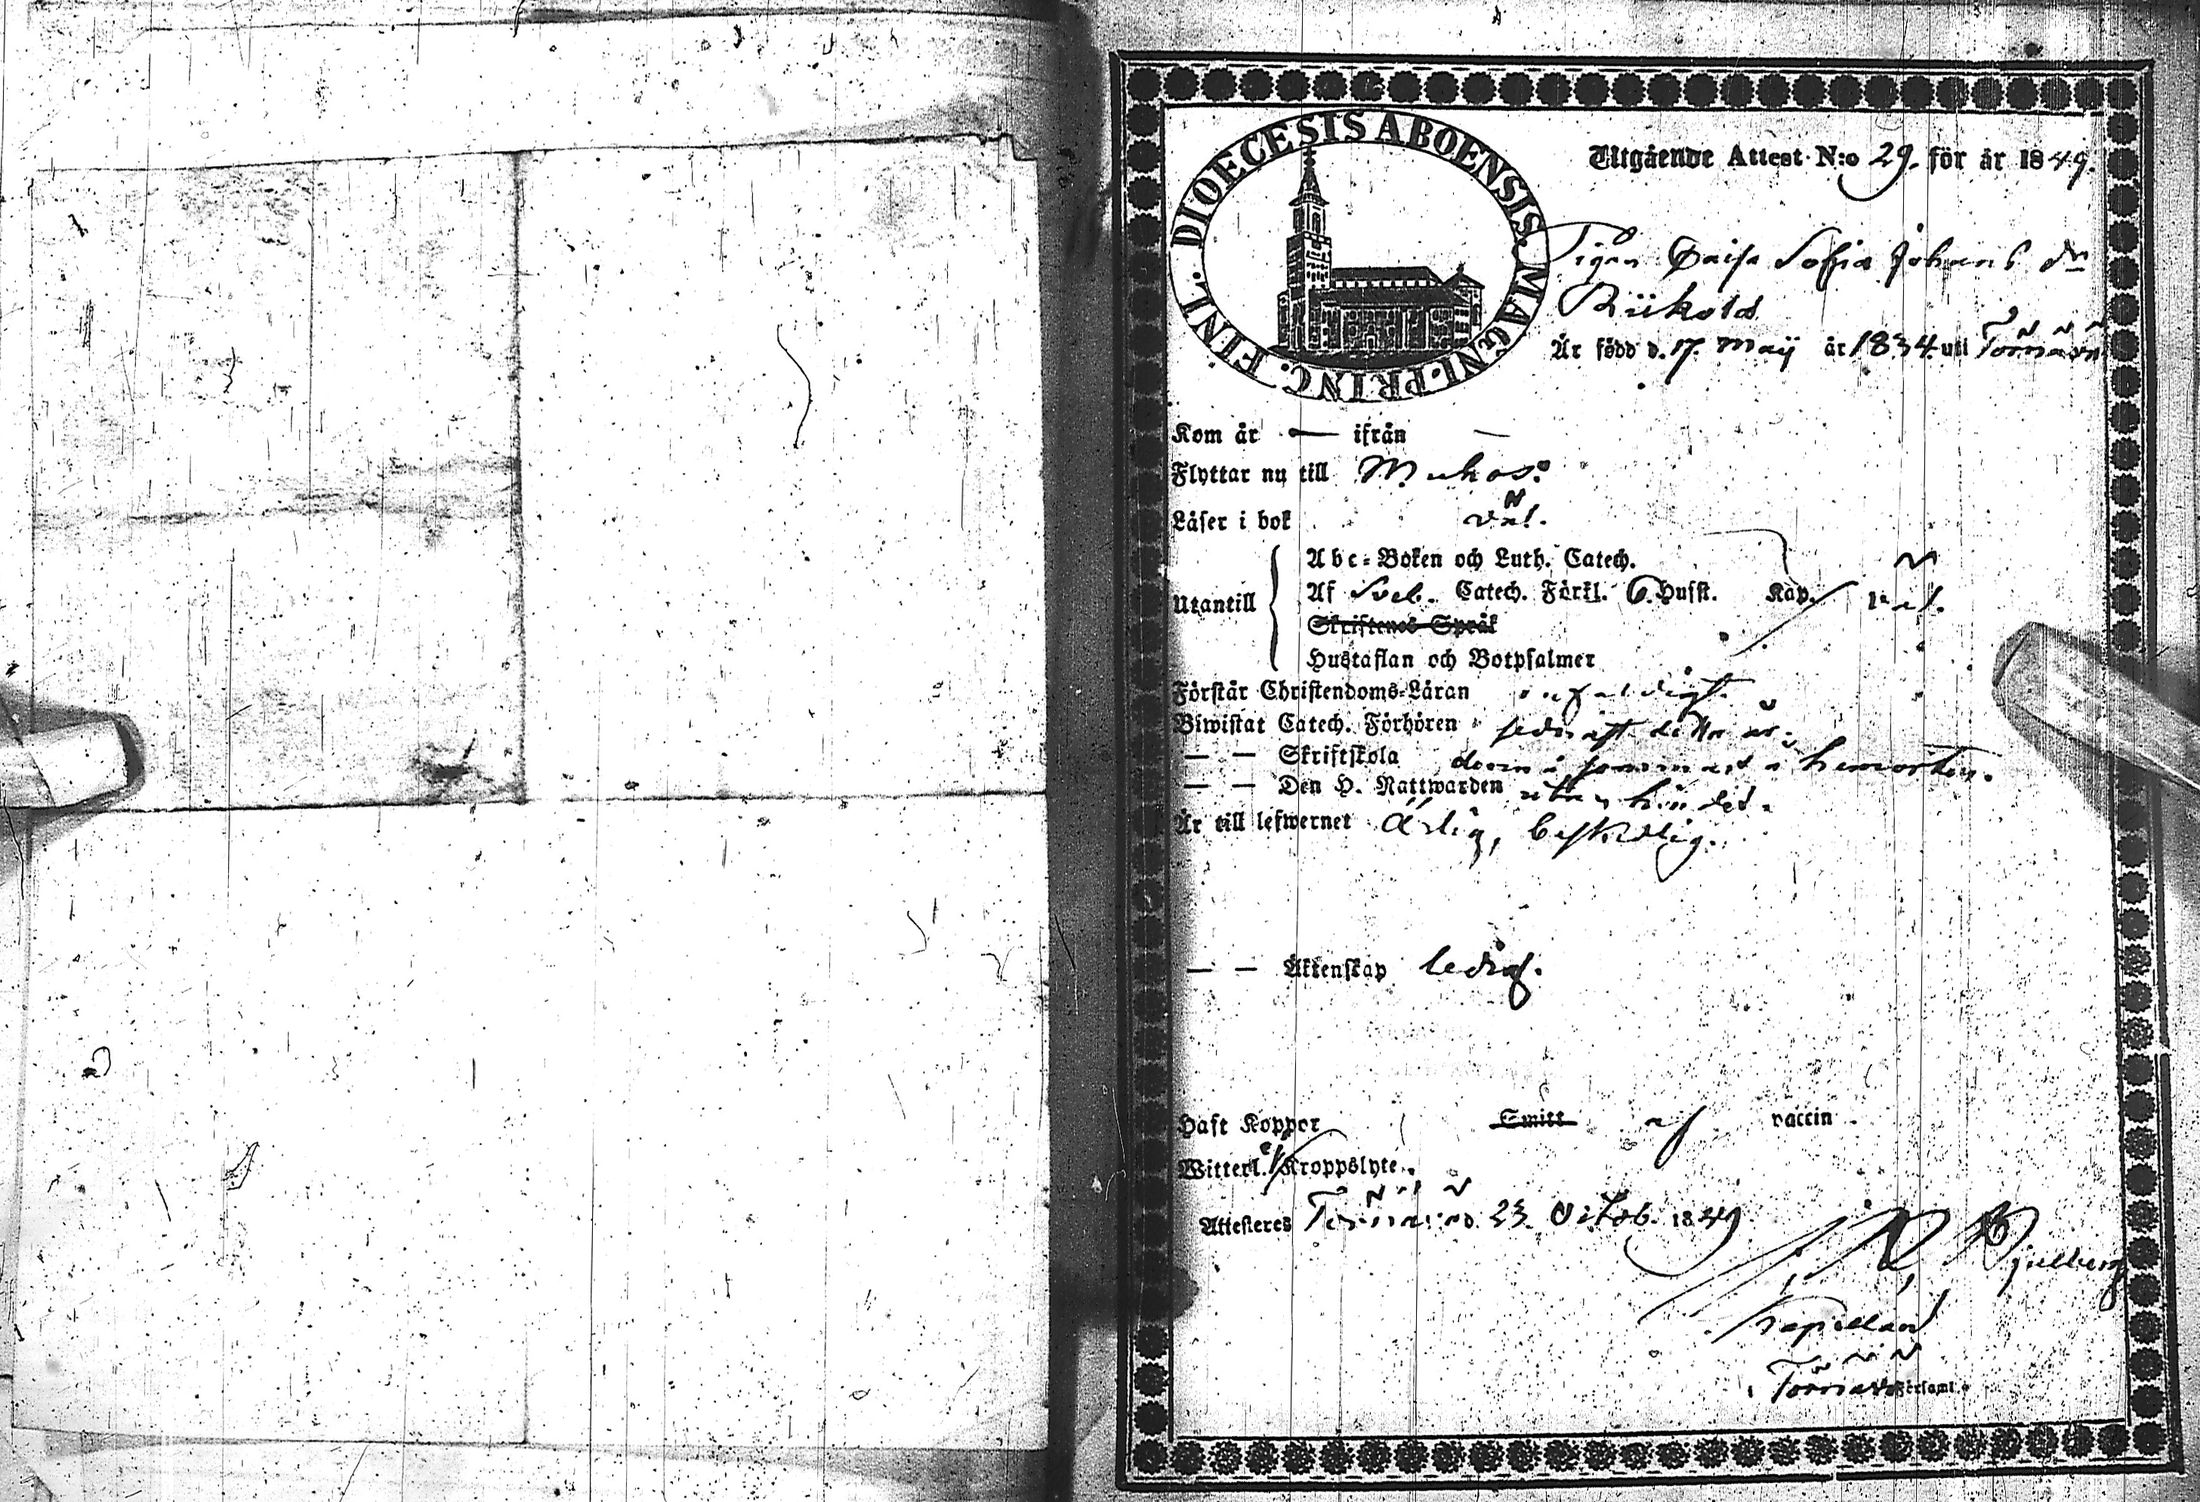 DIOECESIS ABOENSIS. MAGNI. PRINC. FINL.
Utgående Attest N:o 29. för år 1849.
Pigan Caisa Sofia Johans dr
Är född d. 17. Maij år 1834. uti Törnävä
Kom år — ifrån —
Flyttar nu till
Läser i bok väl.
Abc-Boken och Luth. Catech.
Utantill Af Sveb. Catech. Förkl. 6. Husst. Kap. väl.
Skriftenes Språk
Hustaflan och Botpsalmer
Förstår Christendoms-Läran enfaldigt.
Biwistat Catech. Förhören sednast detta år;
— — Skriftskola
— — Den H. Nattwarden
Är till lefwernet Ärlig, beskedlig.
— — Äktenskap ledig.
Haft Koppor Smitt af vaccin
Witterl. Kroppslyte.
Attesteras Törnävä d. 23. Octob. 1849
Kapellan
i Törnävä Församl.